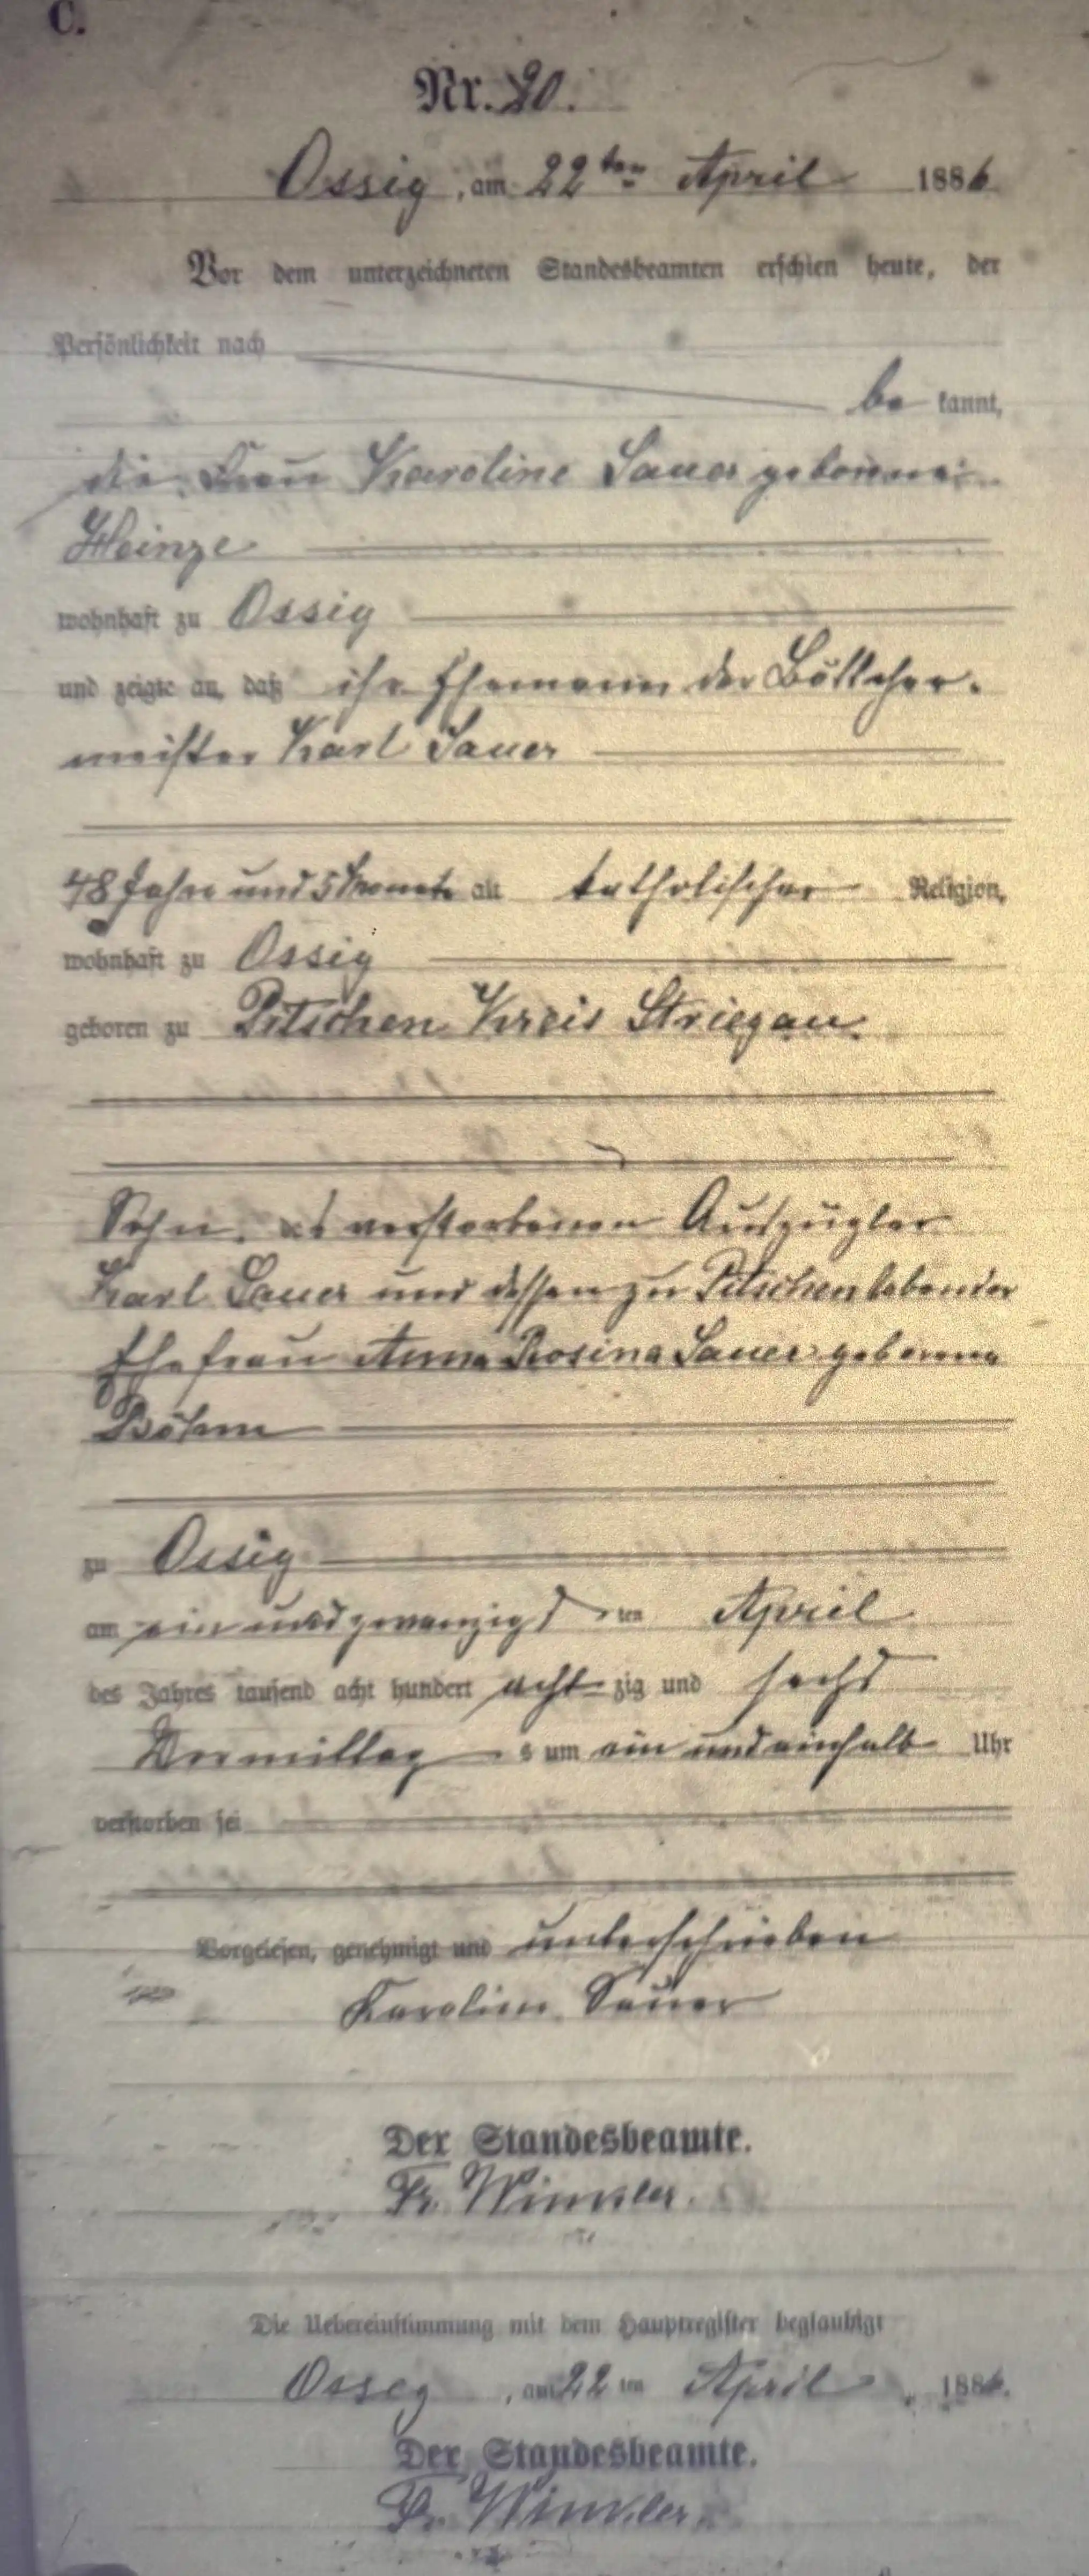 C.
Nr. 20.
Ossig, am 22ten April 1886
Vor dem unterzeichneten Standesbeamten erschien heute, der
Persönlichkeit nach
be kannt,
die Frau Karoline Sauer geborene
Heinze
wohnhaft zu Ossig
und zeigte an, daß ihr Ehemann der Böttcher-
meister Karl Sauer
48 Jahre und 5 Monate alt katholischer Religion,
wohnhaft zu Ossig
geboren zu Pitschen Kreis Striegau.
Sohn des verstorbenen Auszügler
Karl Sauer und dessen zu Pitschen lebender
Ehefrau Anna Rosina Sauer geborene
Böhm
zu Ossig
am ein und zwanzigsten April
des Jahres tausend acht hundert acht zig und sechs
Vormittag s um ein und einhalb Uhr
verstorben sei
Vorgelesen, genehmigt und unterschrieben
Karoline Sauer
Der Standesbeamte.
Fr. Winkler.
Die Uebereinstimmung mit dem Hauptregister beglaubigt
Osseg, am 22 ten April 1886.
Der Standesbeamte.
Fr. Winkler.